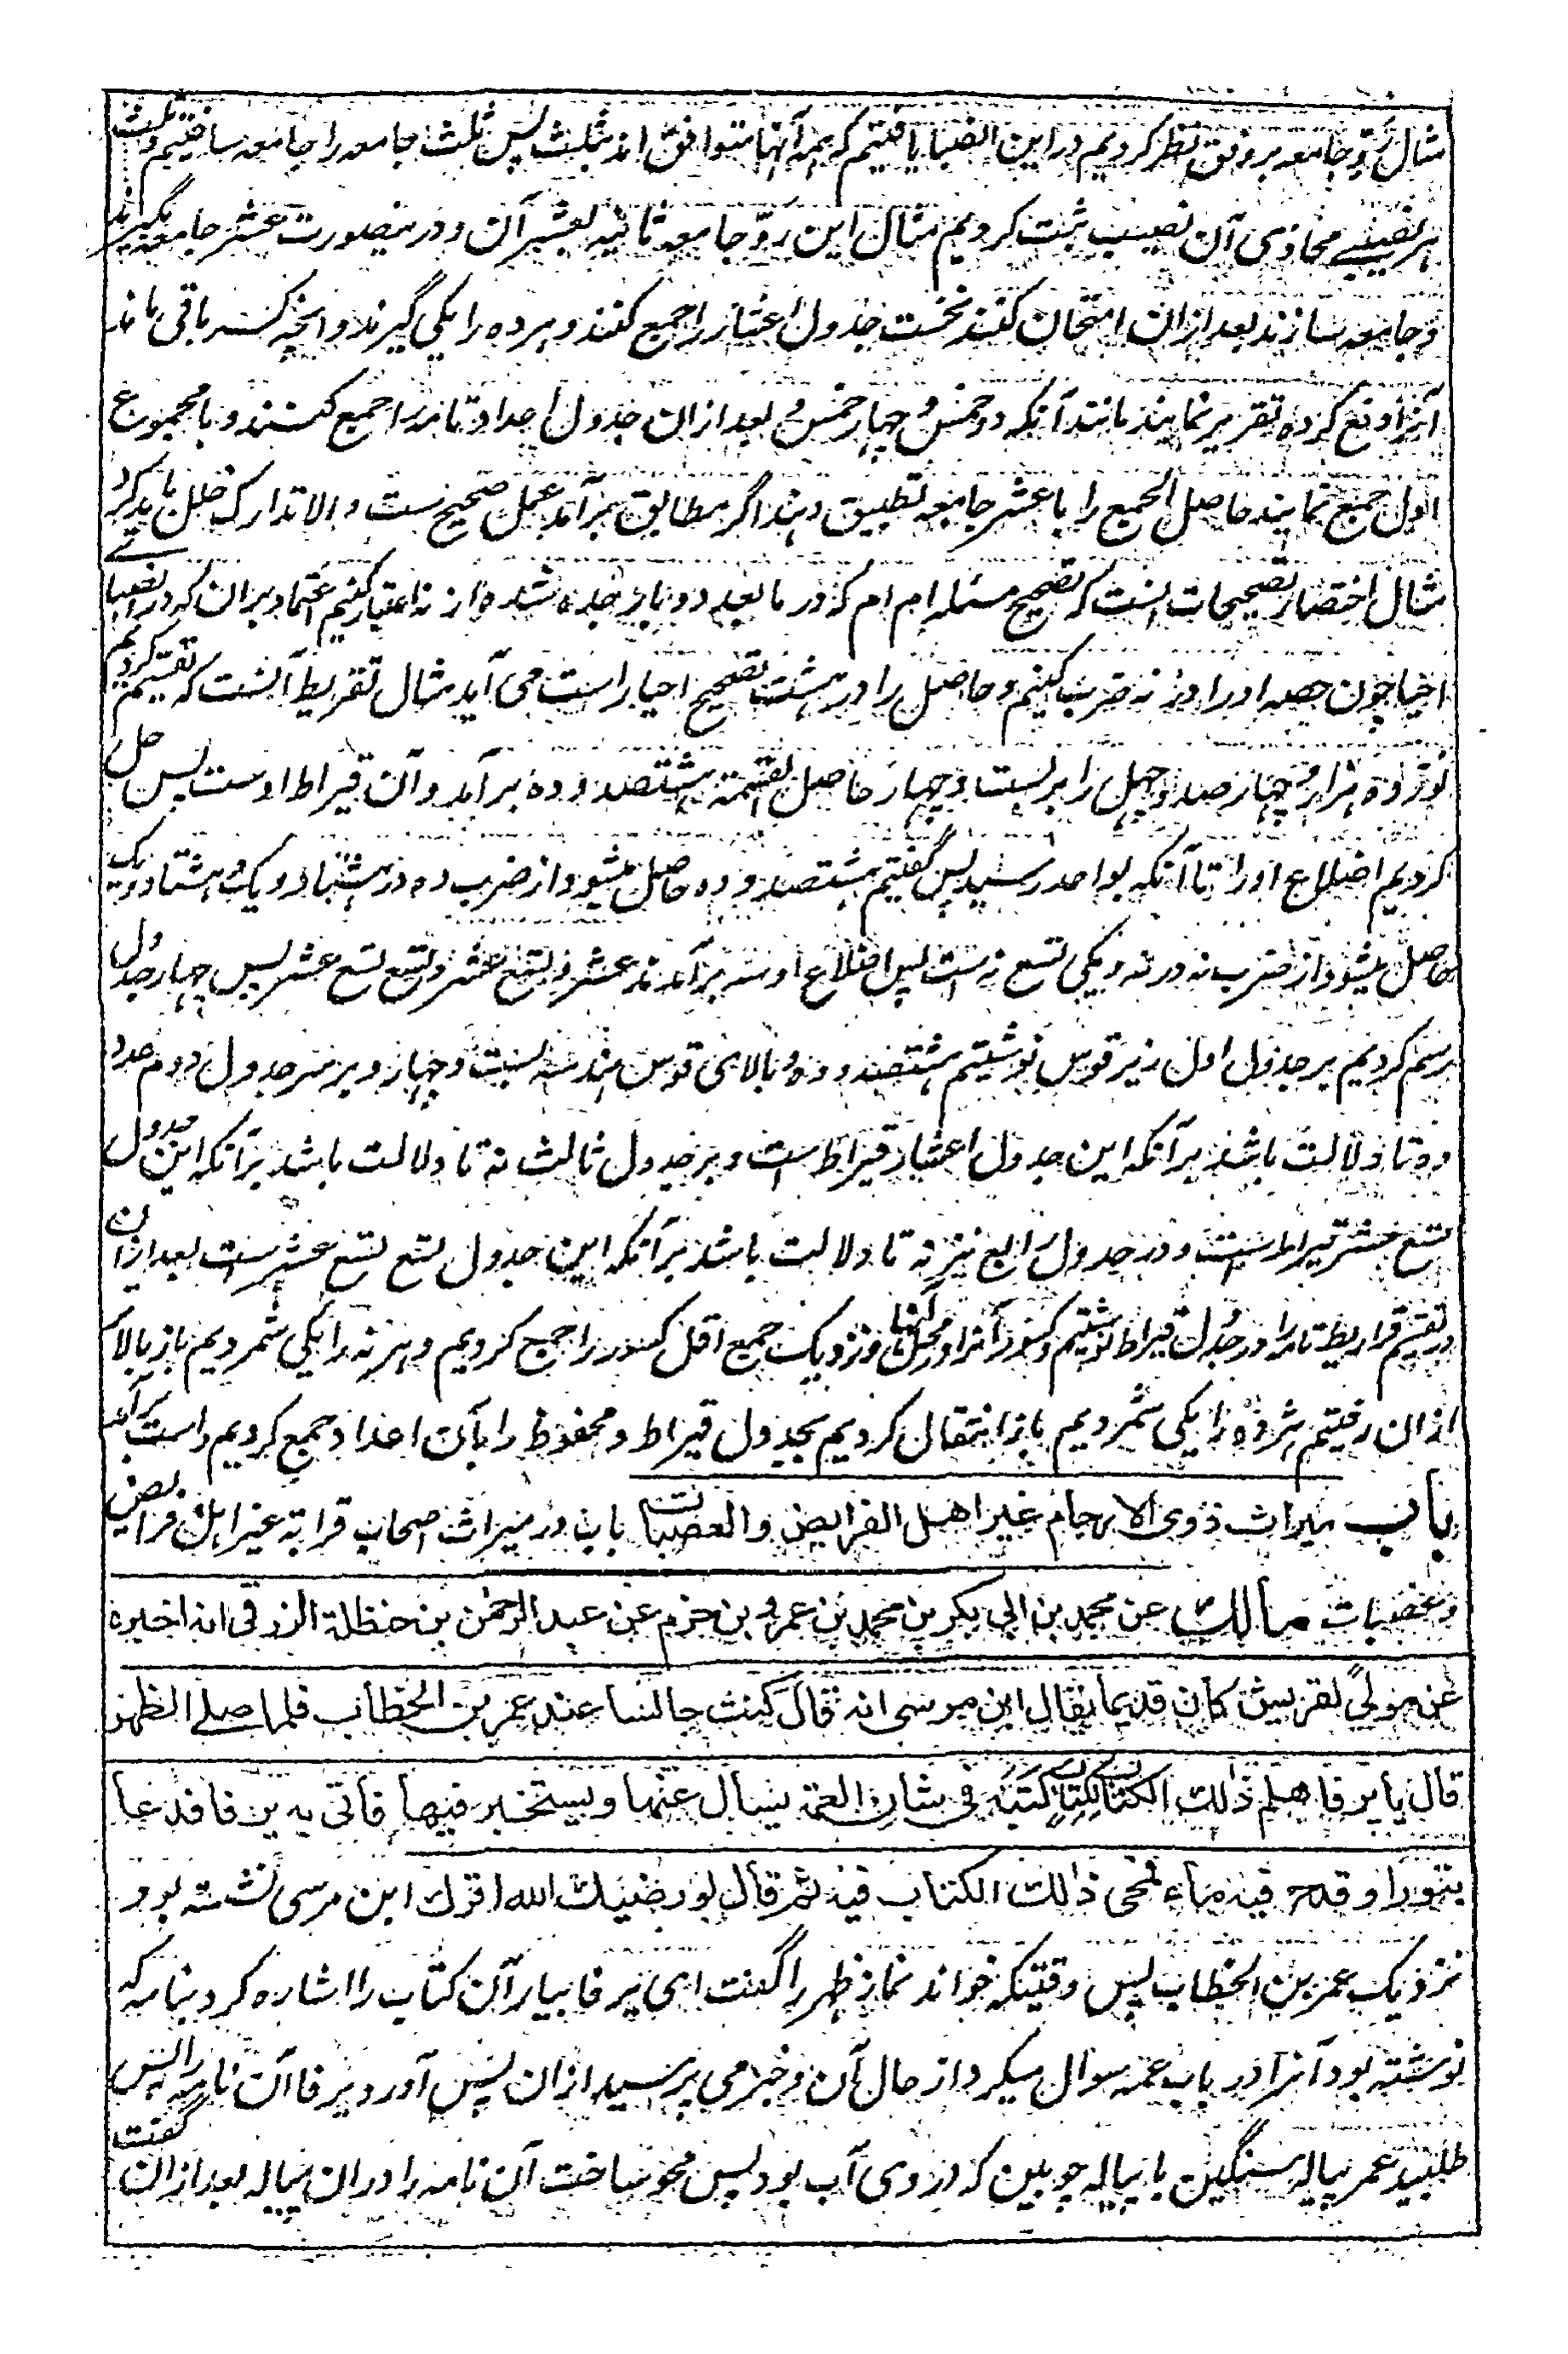 مثال ردّ جامعه بر وفق نظر کردیم در این انصبا یافتیم که همه آنها متوافق اند بثلث پس ثلث جامعه را جامعه ساختیم و ثلث
هر نصیبے محاذی آن نصیب ثبت کردیم مثال این ردّ جامعه ثانیه بعشیر آن و درینصورت عشر جامعه بگیرند
و جامعه سازند بعد ازان امتحان کنند نخست جدول اعشار را جمع کنند و هر ده را یکی گیرند و انچه کسر باقی ماند
آنرا وضع کرده تقریر نمایند مانند آنکه دو خمس و چهار خمس و بعد ازان جدول اعداد تامه را جمع کنند و با مجموع
اول جمع نمایند حاصل الجمع را با عشر جامعه تطبیق دهند اگر مطابق برآمد عمل صحیح ست و الا تدارک خلل باید کرد
مثال اختصار تصحیحات انست که تصحیح مسئله ام ام که در مابعد دو بار جده شده از نه اعتبار کنیم اعتماد بران که در انصباے
احیا چون حصه او را در نه ضرب کنیم و حاصل را در هشت تصحیح احیا راست می آید مثال تقریط آنست که تقسیم کردیم
نوزده هزار و چهار صد و چهل را بر بست و چهار حاصل القسمة هشتصد و ده برآمد و آن قیراط اوست پس حل
کردیم اضلاع او را تا آنکه بواحد رسید پس گفتیم هشتصد و ده حاصل میشود از ضرب ده در هشتاد و یک و هشتاد و یک
حاصل میشود از ضرب نه در نه و یکی تسع نه ست پس اضلاع او سه برآمدند عشر و تسع عشر و تسع تسع عشر پس چهار جدول
رسم کردیم بر جدول اول زیر قوس نوشتیم هشتصد و ده و بالای قوس هندسه بست و چهار و بر سر جدول دوم عدد
ده تا دلالت باشد بر آنکه این جدول اعشار قیراط ست و بر جدول ثالث نه تا دلالت باشد بر آنکه این جدول
تسع عشر قیراط ست و در جدول رابع نیز نه تا دلالت باشد بر آنکه این جدول تسع تسع عشر ست بعد ازان
در تقسیم قراریط تامه را در جدول قیراط نوشتیم و کسور آنرا در محل آنها و نزدیک جمع اقل کسور را جمع کردیم و هر نه را یکی شمردیم باز بالاے
ازان رفتیم هر ده را یکی شمردیم باز انتقال کردیم بجدول قیراط و محفوظ را بآن اعداد جمع کردیم راست برآمد
باب میراث ذوی الارحام غیر اهل الفرایض والعصبات باب در میراث اصحاب قرابة غیر اهل فرایض
و عصبات مالك عن محمد بن ابی بکر بن محمد بن عمرو بن حزم عن عبد الرحمٰن بن حنظلة الزرقی انه اخبره
عن مولیً لقریش کان قدیما یقال ابن موسی انه قال کنت جالسا عند عمر بن الخطاب فلما صلے الظهر
قال یا یرفا هلم ذٰلك الکتاب لکتاب کتبه فی شان العمة یسال عنها ویستخبر فیها فاتی به یرفا فدعا
بتور او قدح فیه ماء فمحی ذٰلك الکتاب فیه ثم قال لو رضیك الله اقرك ابن مرسی نشسته بود
نزدیک عمر بن الخطاب پس وقتیکه خواند نماز ظهر را گفت ای یرفا بیار آن کتاب را اشاره کرد بنامه که
نوشته بود آنرا در باب عمه سوال میکرد از حال آن و خبر می پرسید ازان پس آورد یرفا آن نامه را پس
طلبید عمر پیاله سنگین یا پیاله چوبین که در وی آب بود پس محو ساخت آن نامه را دران پیاله بعد ازان گفت